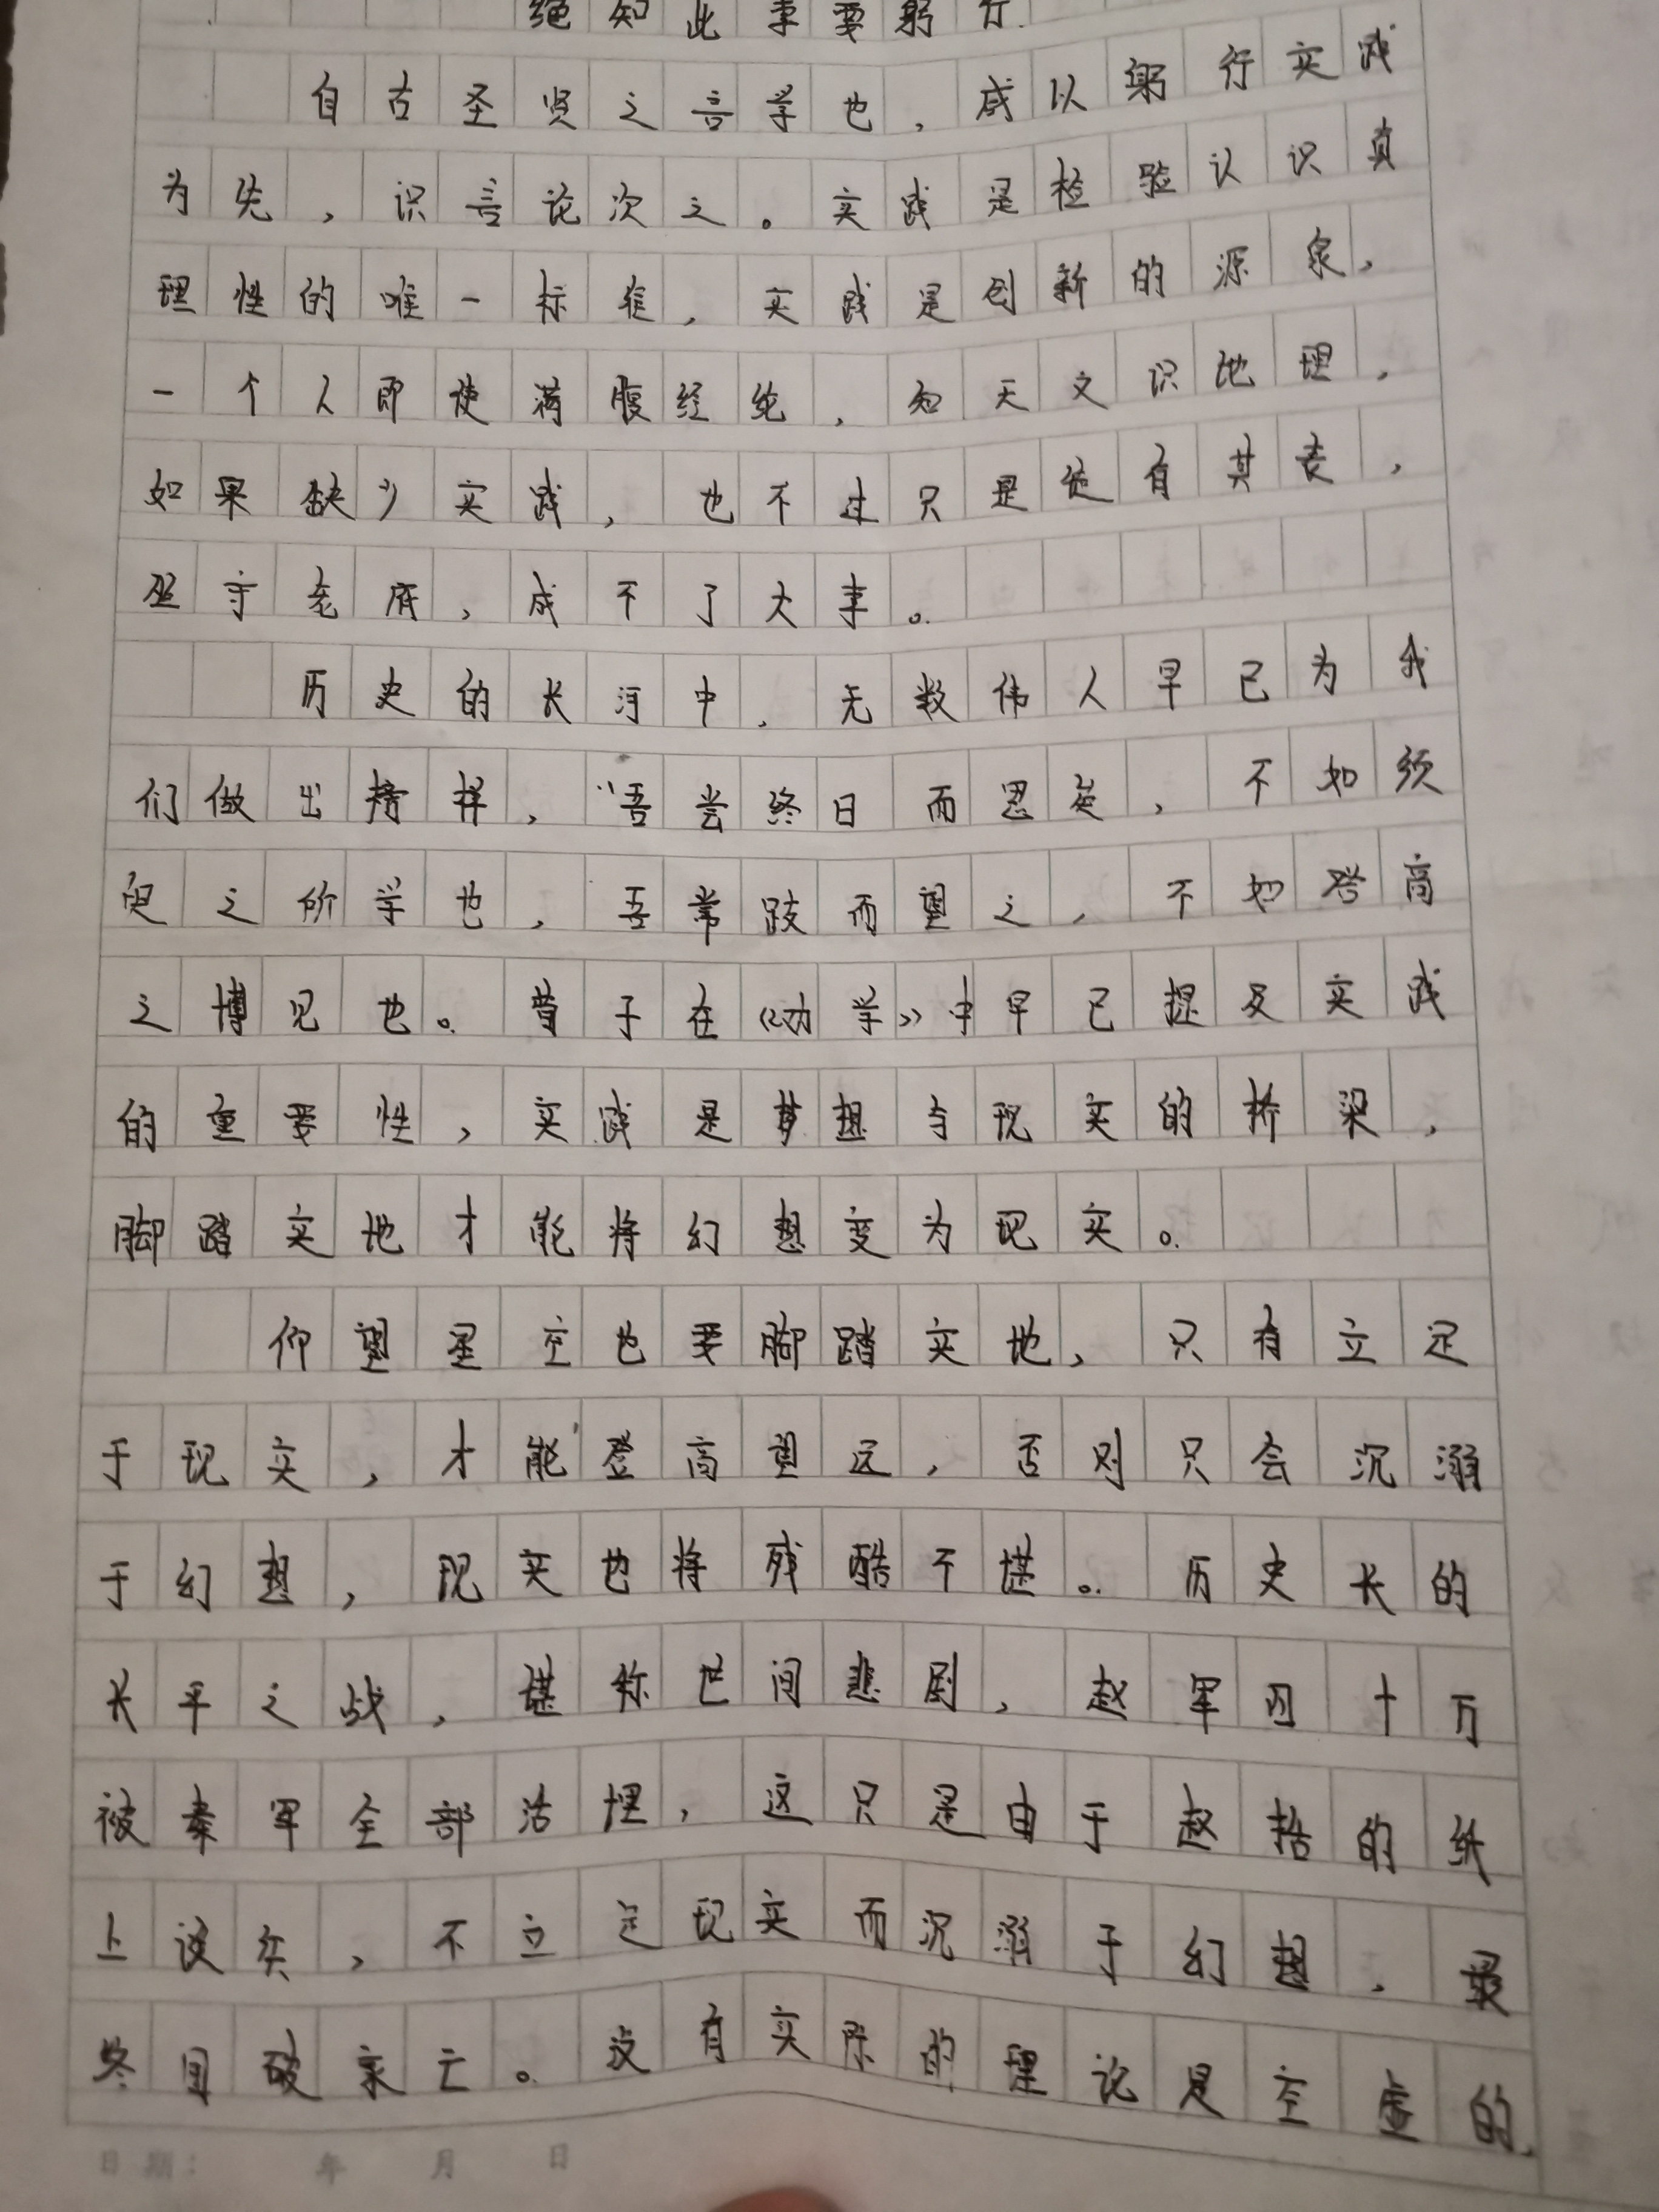 绝知此事要躬行
自古圣贤之言学也，咸以躬行实践
为先，识言论次之。实践是检验认识真
理性的唯一标准，实践是创新的源泉，
一个人即使满腹经纶，知天文识地理，
如果缺少实践，也不过只是徒有其表，
成不了大事。
历史的长河中，无数伟人早已为我
们做出榜样，“吾尝终日而思矣，不如须
臾之所学也，吾常跂而望之，不如登高
之博见也。荀子在《劝学》中早已提及实践
的重要性，实践是梦想与现实的桥梁，
脚踏实地才能将幻想变为现实。
仰望星空也要脚踏实地，只有立足
于现实，才能登高望远，否则只会沉溺
于幻想，现实也将残酷不堪。历史长的
长平之战，堪称世间悲剧，赵军四十万
被秦军全部活埋，这只是由于赵括的纸
上谈兵，不立足现实而沉溺于幻想，最
终国破家亡。没有实际的理论是空虚的，
日期： 年 月 日